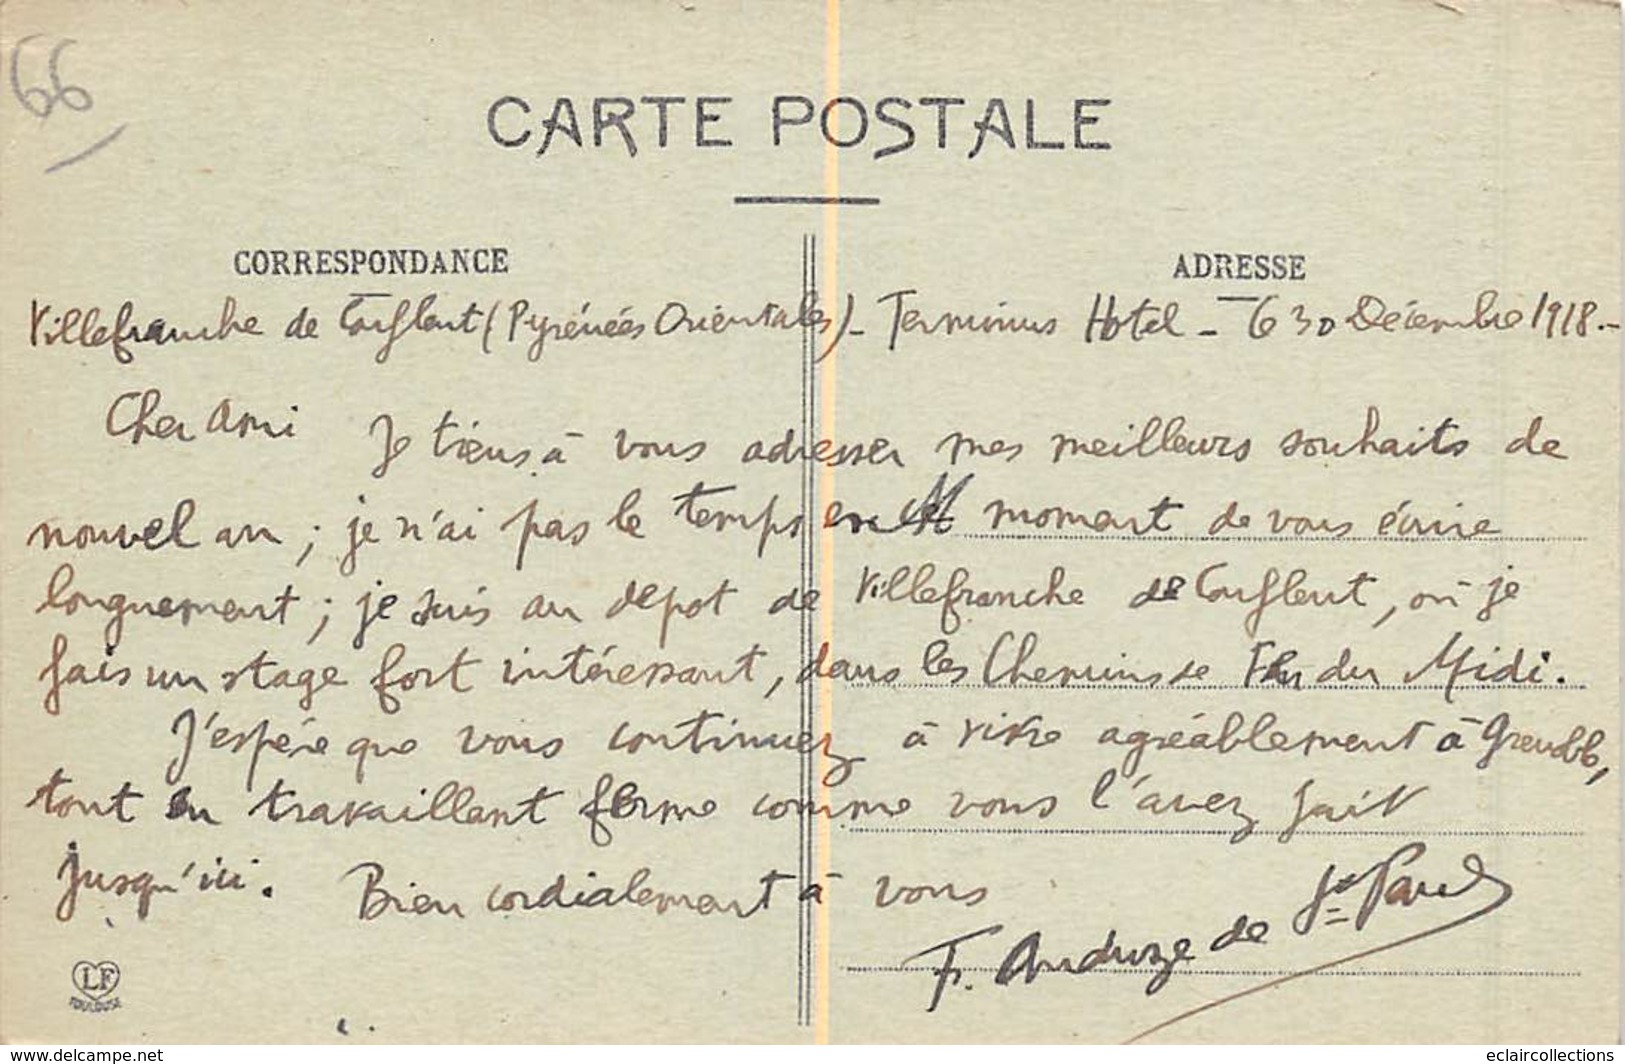 66
CARTE POSTALE
CORRESPONDANCE
ADRESSE
Villefranche de Conflent (Pyrénées Orientales) - Terminus Hotel - le 30 Décembre 1918.-
Cher Ami Je tiens à vous adresser mes meilleurs souhaits de
nouvel an ; je n'ai pas le temps en ce moment de vous écrire
longuement ; je suis au depot de Villefranche de Conflent, où je
fais un stage fort intéressant, dans les Chemins de du Midi.
J'espère que vous continuez à vivre agréablement à Grenoble,
tout en travaillant ferme comme vous l'avez fait
jusqu'ici. Bien cordialement à vous
F. Anduze de St Paul
LF
TOULOUSE
www.delcampe.net
eclaircollections